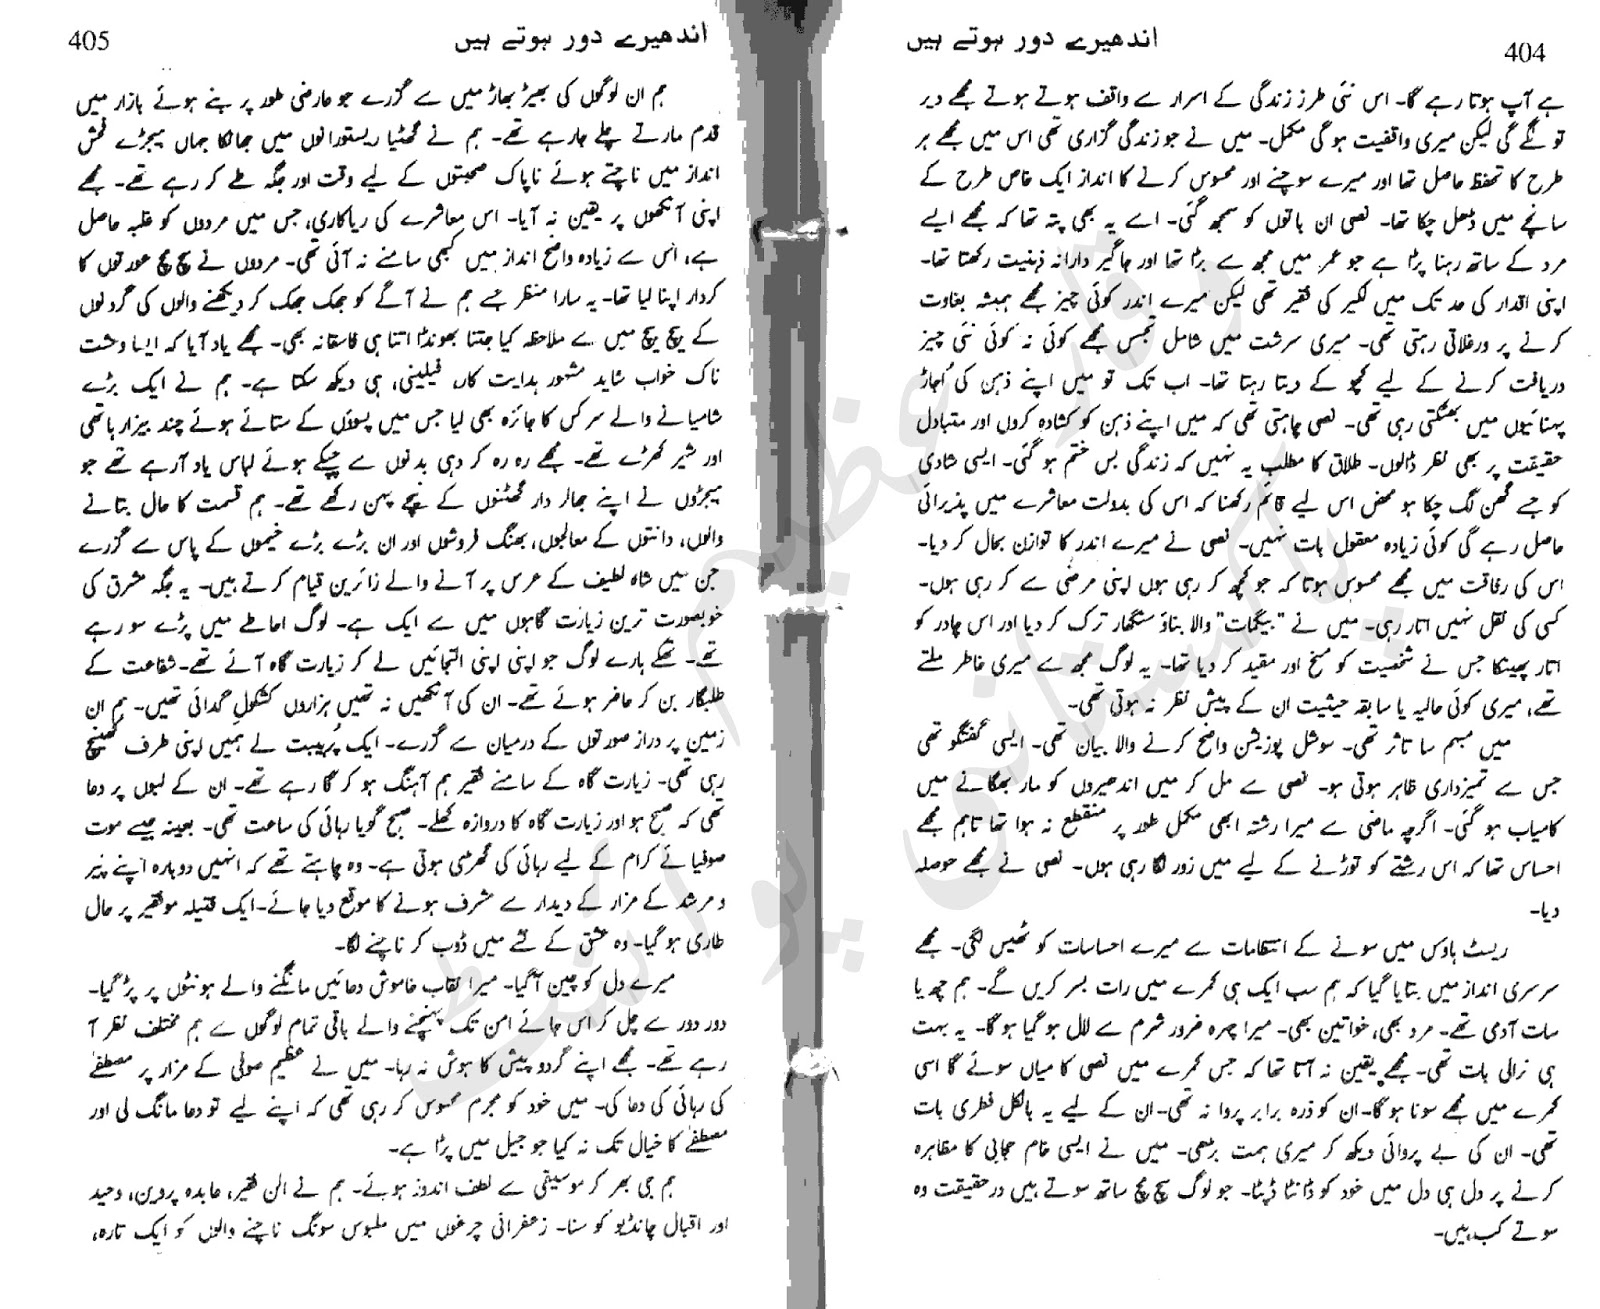 404
اندھیرے دور ہوتے ہیں
ہے آپ ہوتا رہے گا۔ اس نئی طرز زندگی کے اسرار سے واقف ہوتے ہوتے مجھے دیر
تو لگے گی لیکن میری واقفیت ہو گی مکمل۔ میں نے جو زندگی گزاری تھی اس میں مجھے ہر
طرح کا تحفظ حاصل تھا اور میرے سوچنے اور محسوس کرنے کا انداز ایک خاص طرح کے
سانچے میں ڈھل چکا تھا۔ نصی ان باتوں کو سمجھ گئی۔ اسے یہ بھی پتہ تھا کہ مجھے ایسے
مرد کے ساتھ رہنا پڑا ہے جو عمر میں مجھ سے بڑا تھا اور جاگیر دارانہ ذہنیت رکھتا تھا۔
اپنی اقدار کی حد تک میں لکیر کی فقیر تھی لیکن میرے اندر کوئی چیز مجھے ہمیشہ بغاوت
کرنے پر ورغلاتی رہتی تھی۔ میری سرشت میں شامل تجسس مجھے کوئی نہ کوئی نئی چیز
دریافت کرنے کے لیے کچو کے دیتا رہتا تھا۔ اب تک تو میں اپنے ذہن کی اُجاڑ
پہنائیوں میں بھٹکتی رہی تھی۔ نصی چاہتی تھی کہ میں اپنے ذہن کو کشادہ کروں اور متبادل
حقیقت پر بھی نظر ڈالوں۔ طلاق کا مطلب یہ نہیں کہ زندگی بس ختم ہو گئی۔ ایسی شادی
کو جسے گھن لگ چکا ہو محض اس لیے قائم رکھنا کہ اس کی بدولت معاشرے میں پذیرائی
حاصل رہے گی کوئی زیادہ معقول بات نہیں۔ نصی نے میرے اندر کا توازن بحال کر دیا۔
اس کی رفاقت میں مجھے محسوس ہوتا کہ جو کچھ کر رہی ہوں اپنی مرضی سے کر رہی ہوں۔
کسی کی نقل نہیں اتار رہی۔ میں نے "بیگمات" والا بناؤ سنگھار ترک کر دیا اور اس چادر کو
اتار پھینکا جس نے شخصیت کو مسخ اور مقید کر دیا تھا۔ یہ لوگ مجھ سے میری خاطر ملتے
تھے، میری کوئی حالیہ یا سابقہ حیثیت ان کے پیش نظر نہ ہوتی تھی۔
میں مبہم سا تاثر تھی۔ سوشل پوزیشن واضح کرنے والا بیان تھی۔ ایسی گفتگو تھی
جس سے تمیزداری ظاہر ہوتی ہو۔ نصی سے مل کر میں اندھیروں کو مار بھگانے میں
کامیاب ہو گئی۔ اگرچہ ماضی سے میرا رشتہ ابھی مکمل طور پر منقطع نہ ہوا تھا تاہم مجھے
احساس تھا کہ اس رشتے کو توڑنے کے لیے میں زور لگا رہی ہوں۔ نصی نے مجھے حوصلہ
دیا۔
ریسٹ ہاؤس میں سونے کے انتظامات سے میرے احساسات کو ٹھیس لگی۔ مجھے
سرسری انداز میں بتایا گیا کہ ہم سب ایک ہی کمرے میں رات بسر کریں گے۔ ہم چھ یا
سات آدمی تھے۔ مرد بھی، خواتین بھی۔ میرا چہرہ ضرور شرم سے لال ہو گیا ہو گا۔ یہ بہت
ہی نرالی بات تھی۔ مجھے یقین نہ آتا تھا کہ جس کمرے میں نصی کا میاں سوئے گا اسی
کمرے میں مجھے سونا ہو گا۔ ان کو ذرہ برابر پروا نہ تھی۔ ان کے لیے یہ بالکل فطری بات
تھی۔ ان کی بے پروائی دیکھ کر میری ہمت بڑھی۔ میں نے ایسی خام حجابی کا مظاہرہ
کرنے پر دل ہی دل میں خود کو ڈانٹا ڈپٹا۔ جو لوگ سچ مچ ساتھ سوتے ہیں درحقیقت وہ
سوتے کب ہیں۔
405
اندھیرے دور ہوتے ہیں
ہم ان لوگوں کی بھیڑ بھاڑ میں سے گزرے جو عارضی طور پر بنے ہوئے بازار میں
قدم مارتے چلے جا رہے تھے۔ ہم نے گھٹیا ریستورانوں میں جھانکا جہاں ہیجڑے فحش
انداز میں ناچتے ہوئے ناپاک صحبتوں کے لیے وقت اور جگہ طے کر رہے تھے۔ مجھے
اپنی آنکھوں پر یقین نہ آیا۔ اس معاشرے کی ریاکاری، جس میں مردوں کو غلبہ حاصل
ہے، اس سے زیادہ واضح انداز میں کبھی سامنے نہ آئی تھی۔ مردوں نے سچ مچ عورتوں کا
کردار اپنا لیا تھا۔ یہ سارا منظر جسے ہم نے آگے کو جھک جھک کر دیکھنے والوں کی گردنوں
کے بیچ بیچ میں سے ملاحظہ کیا جتنا بھونڈا اتنا ہی فاسقانہ بھی۔ مجھے یاد آیا کہ ایسا وحشت
ناک خواب شاید مشہور ہدایت کار، فیلینی، ہی دیکھ سکتا ہے۔ ہم نے ایک بڑے
شامیانے والے سرکس کا جائزہ بھی لیا جس میں پسوؤں کے ستائے ہوئے چند بیزار ہاتھی
اور شیر کھڑے تھے۔ مجھے رہ رہ کر وہی بدنوں سے چپکے ہوئے لباس یاد آ رہے تھے جو
ہیجڑوں نے اپنے جھالر دار گھٹنوں کے نیچے پہن رکھے تھے۔ ہم قسمت کا حال بتانے
والوں، دانتوں کے معالجوں، بھنگ فروشوں اور ان بڑے بڑے خیموں کے پاس سے گزرے
جن میں شاہ لطیف کے عرس پر آنے والے زائرین قیام کرتے ہیں۔ یہ جگہ مشرق کی
خوبصورت ترین زیارت گاہوں میں سے ایک ہے۔ لوگ احاطے میں پڑے سو رہے
تھے۔ تھکے ہارے لوگ جو اپنی اپنی التجائیں لے کر زیارت گاہ آئے تھے۔ شفاعت کے
طلبگار بن کر حاضر ہوئے تھے۔ ان کی آنکھیں نہ تھیں ہزاروں کشکول گدائی تھیں۔ ہم ان
زمین پر دراز صورتوں کے درمیان سے گزرے۔ ایک پُرہیبت لے ہمیں اپنی طرف کھینچ
رہی تھی۔ زیارت گاہ کے سامنے فقیر ہم آہنگ ہو کر گا رہے تھے۔ ان کے لبوں پر دعا
تھی کہ صبح ہو اور زیارت گاہ کا دروازہ کھلے۔ صبح گویا رہائی کی ساعت تھی۔ بعینہ جیسے موت
صوفیائے کرام کے لیے رہائی کی گھڑی ہوتی ہے۔ وہ چاہتے تھے کہ انہیں دوبارہ اپنے پیر
و مرشد کے مزار کے دیدار سے مشرف ہونے کا موقع دیا جائے۔ ایک قتیلہ موفقیر پر حال
طاری ہو گیا۔ وہ عشق کے نشے میں ڈوب کر ناچنے لگا۔
میرے دل کو چین آ گیا۔ میرا نقاب خاموش دعائیں مانگنے والے ہونٹوں پر پڑ گیا۔
دور دور سے چل کر اس جائے امن تک پہنچنے والے باقی تمام لوگوں سے ہم مختلف نظر آ
رہے تھے۔ مجھے اپنے گردوپیش کا ہوش نہ رہا۔ میں نے عظیم صوفی کے مزار پر مصطفےٰ
کی رہائی کی دعا کی۔ میں خود کو مجرم محسوس کر رہی تھی کہ اپنے لیے تو دعا مانگ لی اور
مصطفےٰ کا خیال تک نہ کیا جو جیل میں پڑا ہے۔
ہم جی بھر کر موسیقی سے لطف اندوز ہوئے۔ ہم نے الن فقیر، عابدہ پروین، وحید
اور اقبال چانڈیو کو سنا۔ زعفرانی چرغوں میں ملبوس سونگ ناچنے والوں کو ایک تارہ،
پاکستانی پوائنٹ
وقار عظیم